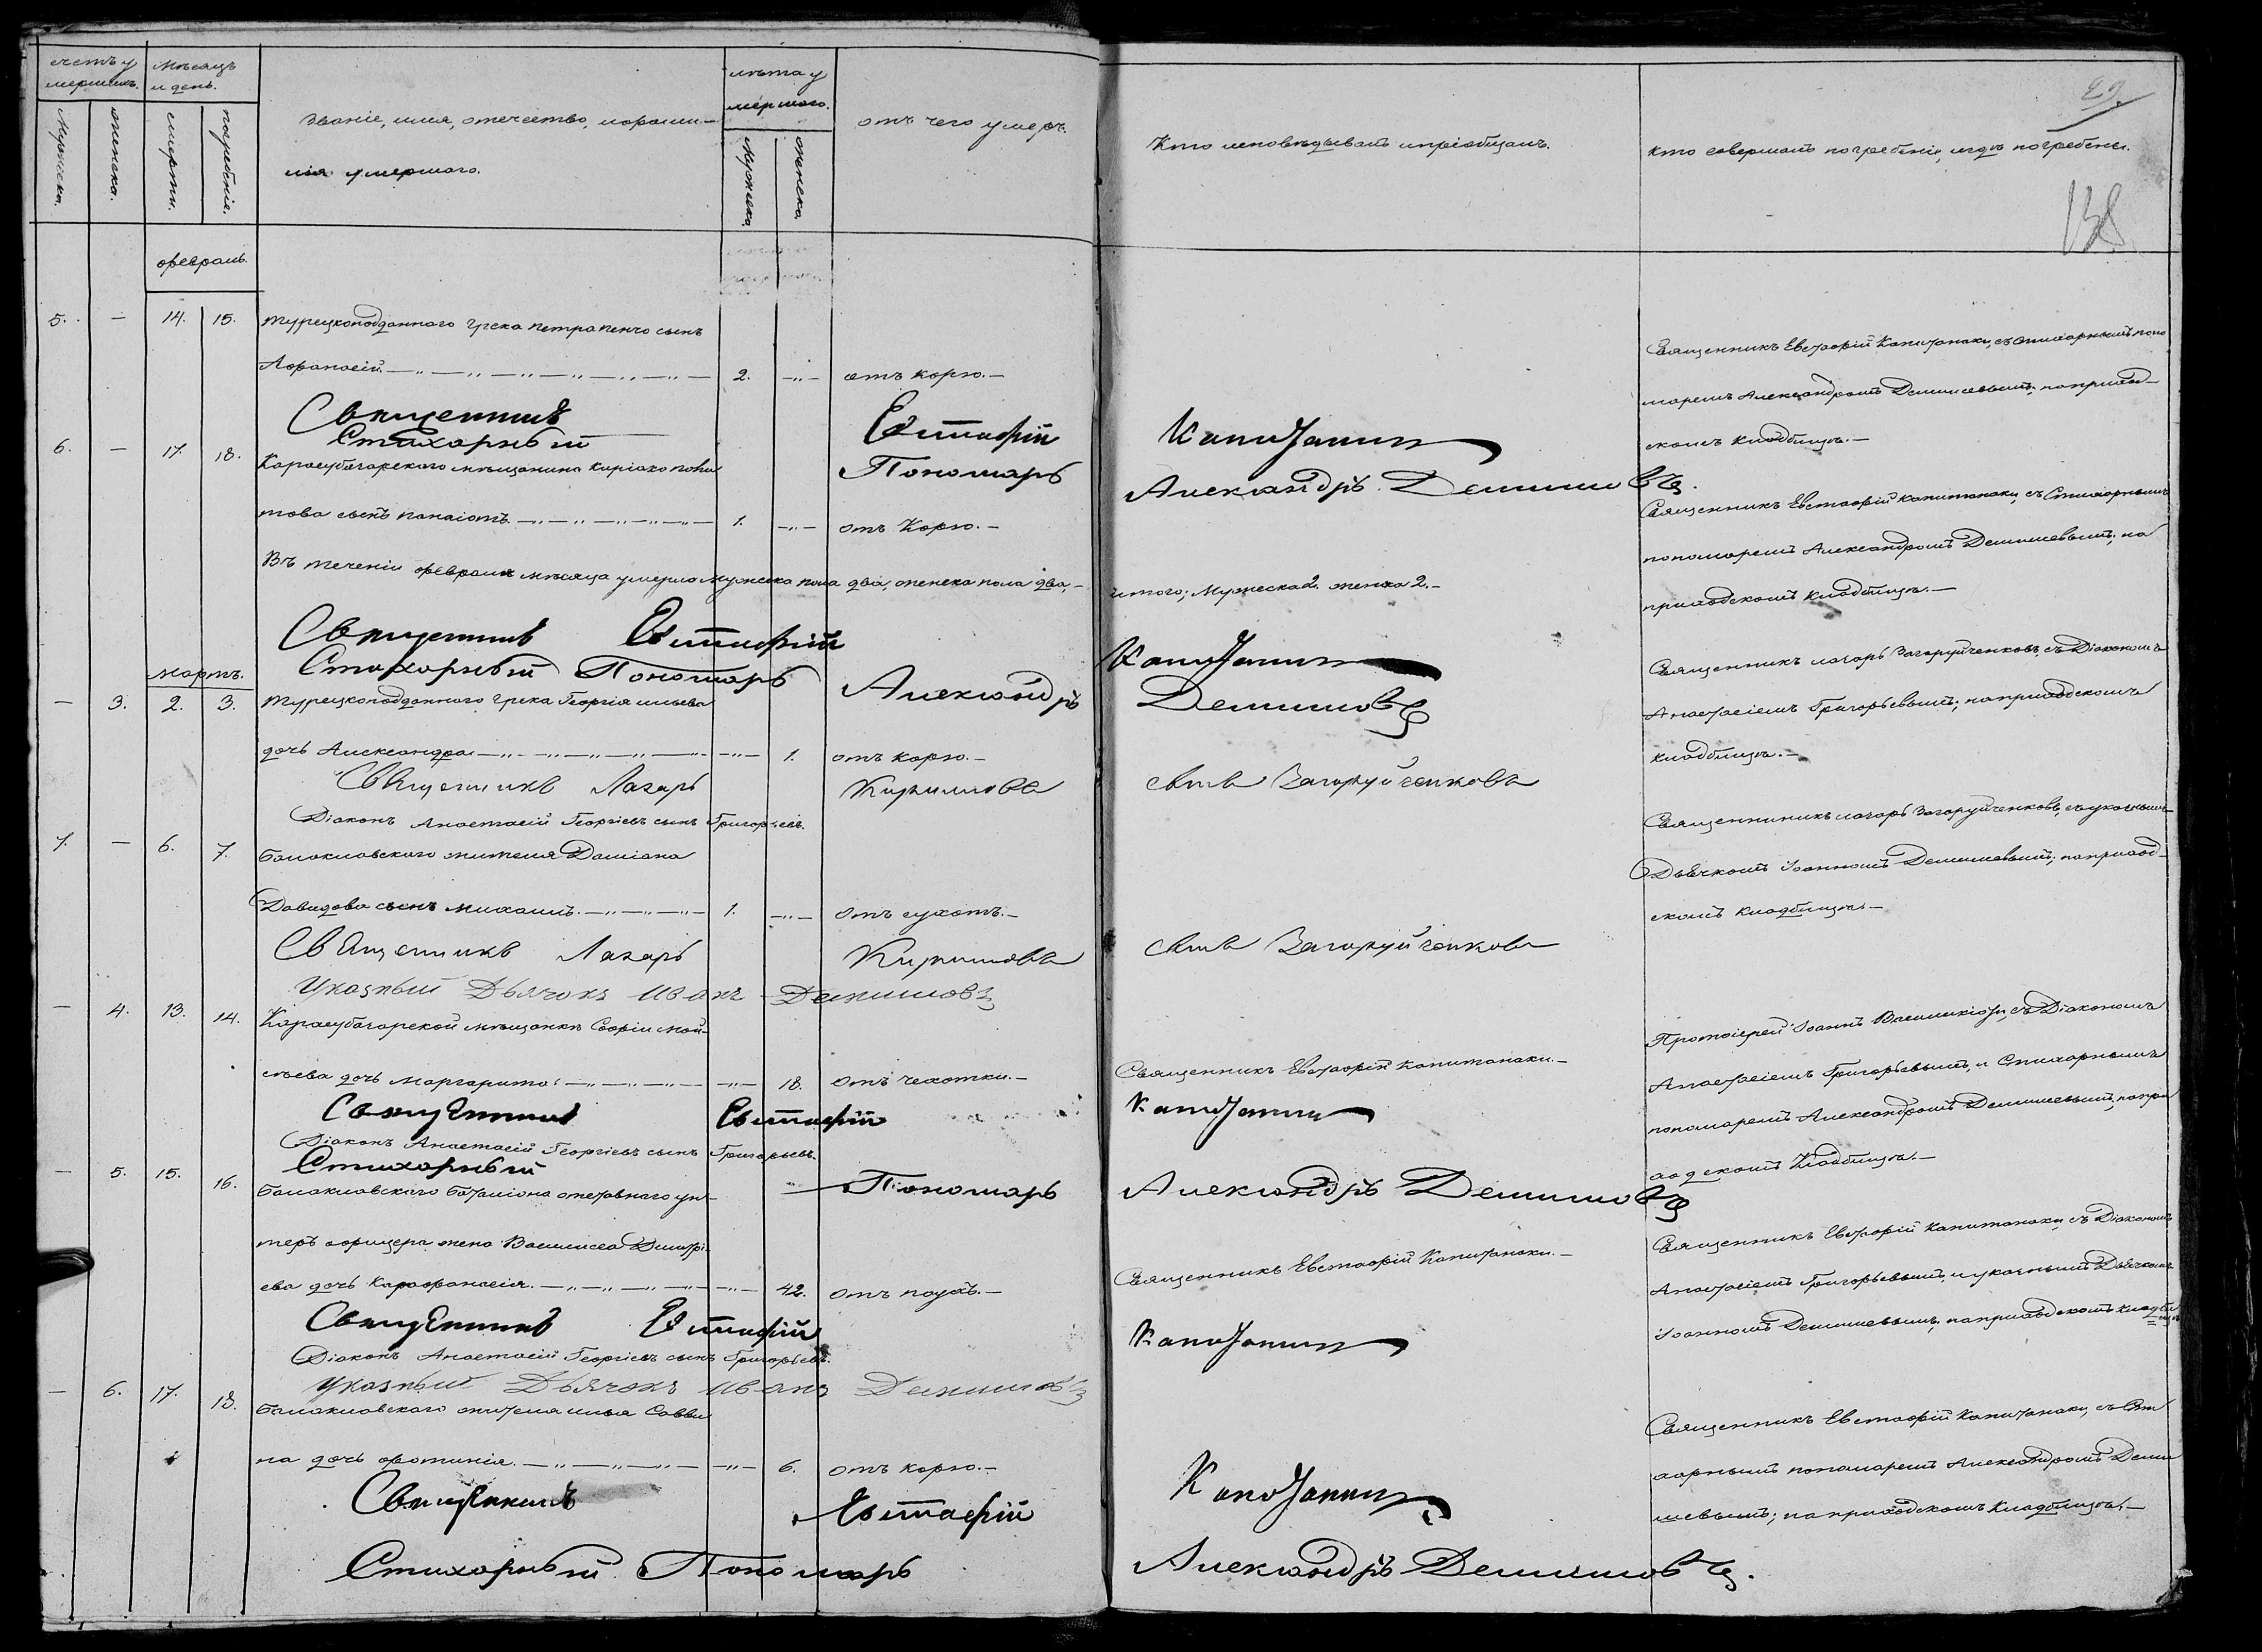 счетъ у
мершихъ.
Мужеска.
женска.
Мѣсяцъ
и день.
смерти.
погребенія.
Званіе, имя, отечество, ифами-
лія умершаго.
лѣта у
мершаго.
Мужеска.
женска.
отъ чего умеръ.
Кто исповѣдывалъ ипріобщалъ.
Кто совершалъ погребеніе, игдѣ погребены.
29
138
февраль.
5. — 14. 15. Турецкоподданнаго грека петра пенчо сынъ
Афанасій. 2. отъ корю.—
Священникъ Евстафій Капитанаки, съ стихарнымъ поно
маремъ Александромъ Демишевымъ; на приход-
скомъ кладбищѣ.—
Священникъ Евстафій Капитанаки
Стихарный Пономарь Александръ Демишевъ.
6. — 17. 18. Карасубазарскаго мѣщанина Киріако
това сынъ панаіотъ. 1. отъ Корю.—
Священникъ Евстафій капитанаки, съ Стихарнымъ
пономаремъ Александромъ Демишевымъ; на
приходскомъ кладбищѣ.—
Въ теченіи февраля мѣсяца умерло мужеска пола два, женска пола два,—
итого; Мужеска 2. женска 2.—
Священникъ Евстафій Капитанаки
Стихарный Пономарь Александръ Демишевъ
мартъ.
— 3. 2. 3. Турецкоподданнаго грека Георгія ильева
дочь Александра 1. отъ корю.—
Священникъ лазарь Загоруйченковъ, съ Діакономъ
Анастасіемъ Григорьевымъ; на приходскомъ
кладбищѣ.—
Священникъ Лазарь Кириловъ сынъ Загоруйченковъ
Діаконъ Анастасій Георгіевъ сынъ Григорьевъ.
7. — 6. 7. балаклавскаго жителя Даміана
Давидова сынъ михаилъ. 1. отъ сухотъ.—
Священникъ лазарь Загоруйченковъ, съ указнымъ
Дьячкомъ Іоанномъ Демишевымъ; на приход-
скомъ кладбищѣ.—
Священникъ Лазарь Кириловъ сынъ Загоруйченковъ
Указный Дьячокъ Иванъ Демишовъ
— 4. 13. 14. Карасубазарской мѣщанки Софіи мои-
сеева дочь маргарита: 18. отъ чехотки.—
Священникъ Евстафій капитанаки.—
Протоіерей Іоаннъ Василькіоти, съ Діакономъ
Анастасіемъ Григорьевымъ, и Стихарнымъ
пономаремъ Александромъ Демишевымъ, на при
ходскомъ Кладбищѣ.—
Священникъ Евстафій Капитанаки
Діаконъ Анастасій Георгіевъ сынъ Григорьевъ.
Стихарный Пономарь Александръ Демишовъ
— 5. 15. 16. балаклавскаго баталіона отставнаго ун-
теръ офицера жена Василиса Димитрі-
ева дочь Карафанасія. 42. отъ
Священникъ Евстафій Капитанаки.—
Священникъ Евстафій Капитанаки, съ Діакономъ
Анастасіемъ Григорьевымъ, и указнымъ Дьячкомъ
Іоанномъ Демишевымъ; на приходскомъ кладби
щѣ
Священникъ Евстафій Капитанаки
Діаконъ Анастасій Георгіевъ сынъ Григорьевъ.
Указный Дьячокъ Иванъ Демишовъ
— 6. 17. 18. балаклавскаго жителя ильи Савви
на дочь фотинія. 6. отъ корю.—
Священникъ Евстафій Капитанаки, съ Сти
харнымъ пономаремъ Александромъ Деми
шевымъ; на приходскомъ Кладбищѣ.—
Священникъ Евстафій Капитанаки
Стихарный Пономарь Александръ Демишовъ.